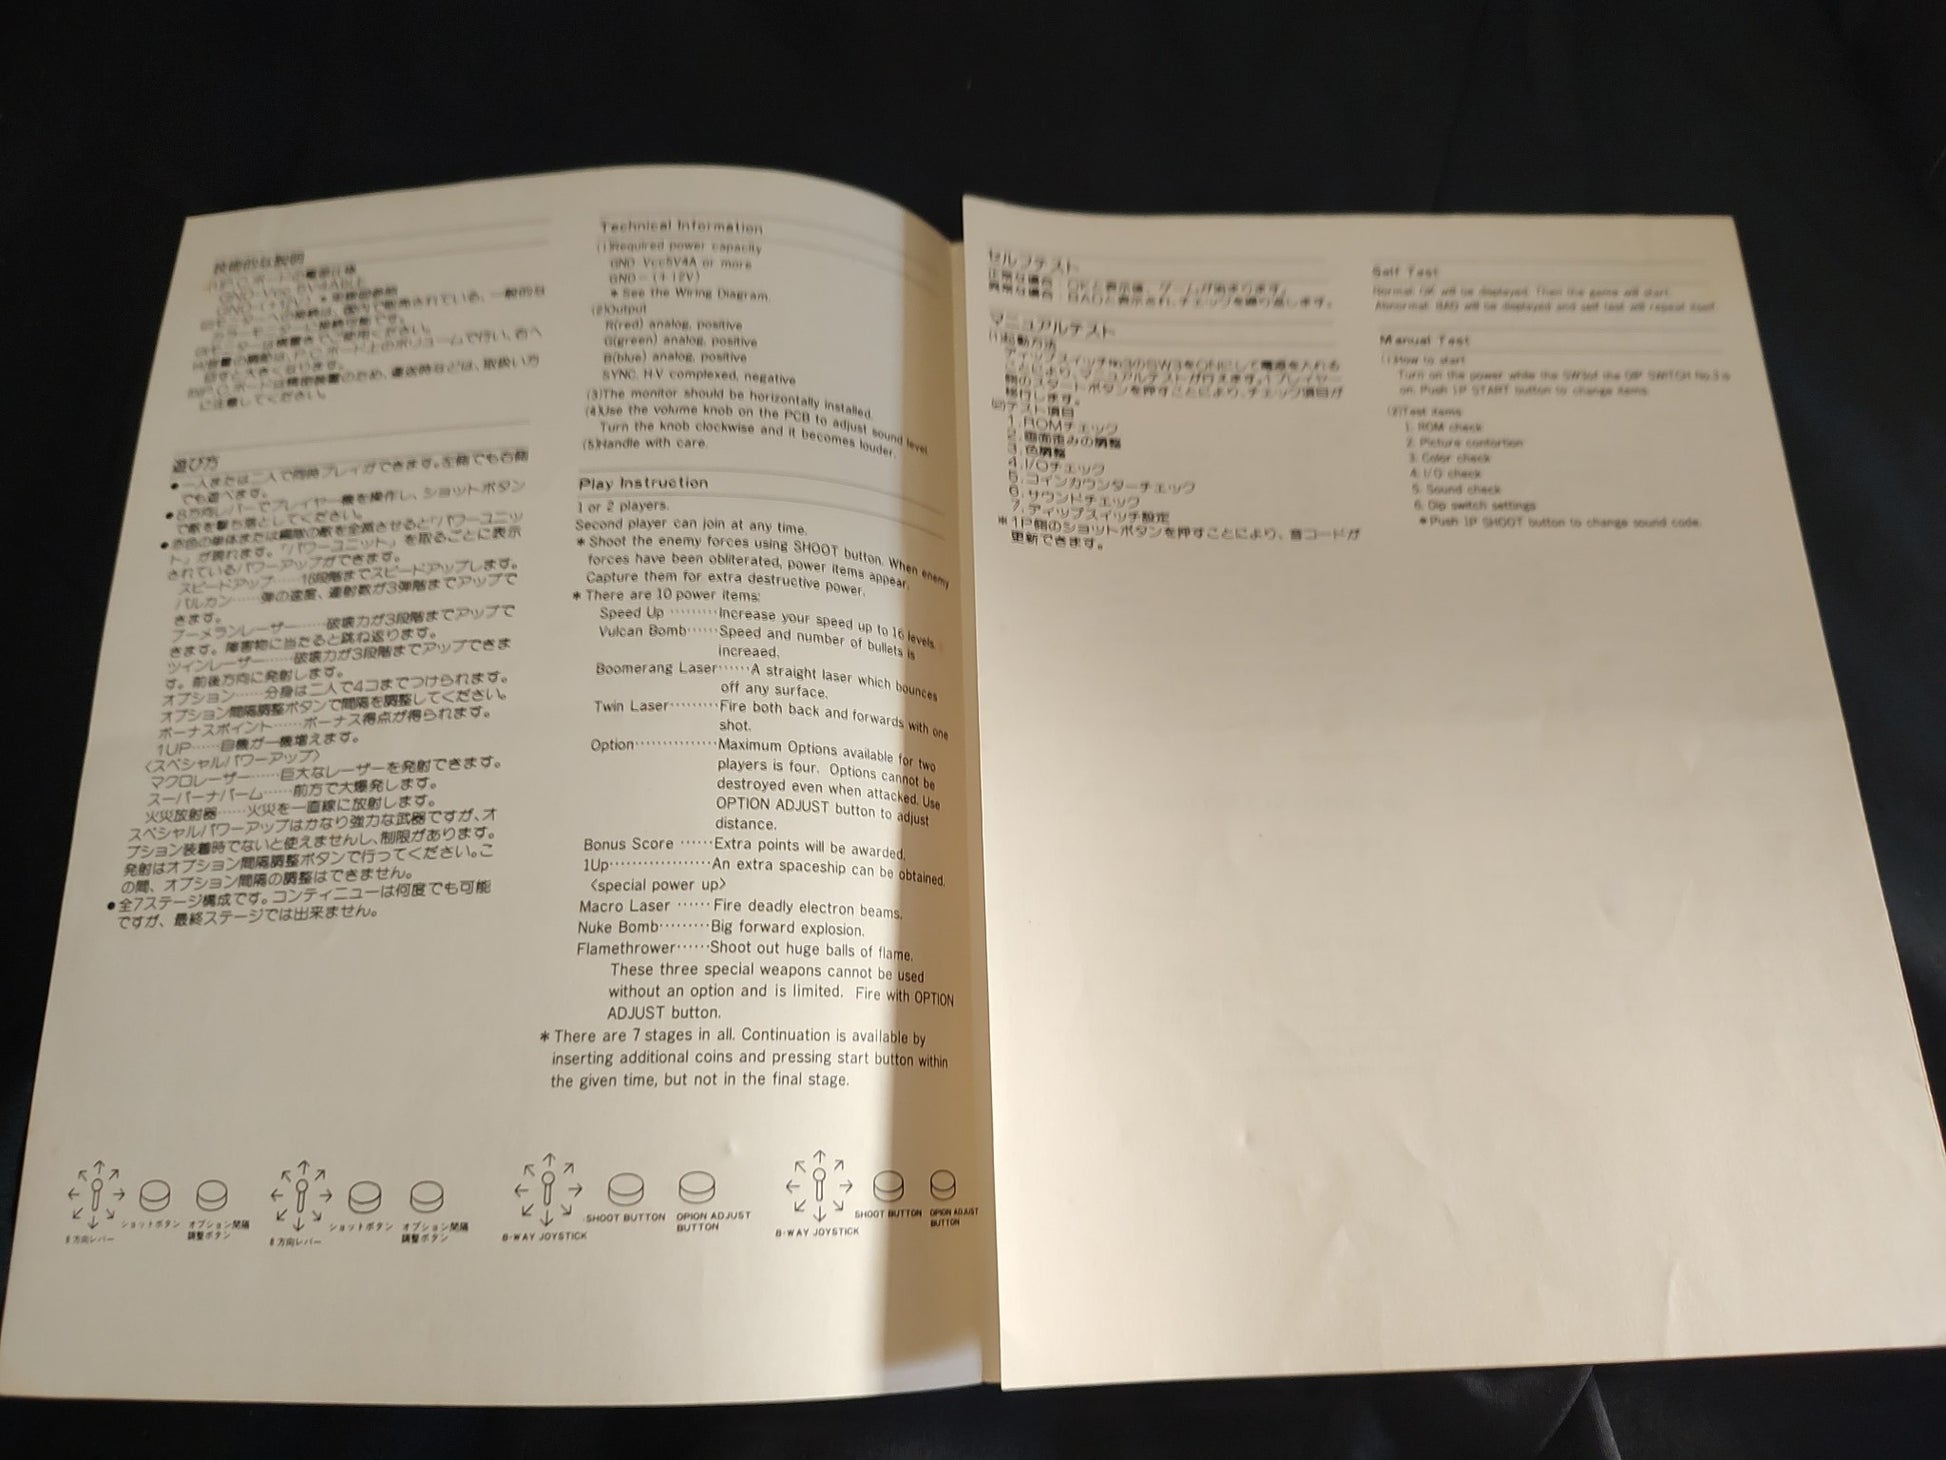 技術的な説明
(1)P.C.ボードの電源仕様
GND-Vcc 5V4A以上
(2)モニターへの接続は、国内で販売されている、一般的な
カラーモニターに接続可能です。
(3)モニターは横置きでご使用ください。
(4)音量の調節は、P.C.ボード上のボリュームで行い、右へ
回すと大きくなります。
(5)P.C.ボードは精密装置のため、運送時などは、取扱い方
に注意してください。
遊び方
●一人または二人で同時プレイができます。左側でも右側
でも遊べます。
●8方向レバーでプレイヤー機を操作し、ショットボタン
で敵を撃ち落としてください。
●赤色の単体または編隊の敵を全滅させると「パワーユニッ
ト」が現れます。「パワーユニット」を取るごとに表示
されているパワーアップができます。
スピードアップ……16段階までスピードアップします。
バルカン……弾の速度、連射数が3弾階までアップで
きます。
ブーメランレーザー……破壊力が3段階までアップで
きます。障害物に当たると跳ね返ります。
ツインレーザー……破壊力が3段階までアップできま
す。前後方向に発射します。
オプション……分身は二人で4コまでつけられます。
オプション間隔調整ボタンで間隔を調整してください。
ボーナスポイント……ボーナス得点が得られます。
1UP……自機が一機増えます。
〈スペシャルパワーアップ〉
マクロレーザー……巨大なレーザーを発射できます。
スーパーナパーム……前方で大爆発します。
火炎放射器……火炎を一直線に放射します。
スペシャルパワーアップはかなり強力な武器ですが、オ
プション装着時でないと使えませんし、制限があります。
発射はオプション間隔調整ボタンで行ってください。こ
の間、オプション間隔の調整はできません。
●全7ステージ構成です。コンティニューは何度でも可能
ですが、最終ステージでは出来ません。
8方向レバー
ショットボタン
オプション間隔
調整ボタン
8方向レバー
ショットボタン
オプション間隔
調整ボタン
Technical Information
(1)Required power capacity
GND-Vcc5V4A or more
GND-(+12V)
＊See the Wiring Diagram.
(2)Output
R(red) analog, positive
G(green) analog, positive
B(blue) analog, positive
SYNC. H·V complexed, negative
(3)The monitor should be horizontally installed.
(4)Use the volume knob on the PCB to adjust sound level.
Turn the knob clockwise and it becomes louder.
(5)Handle with care.
Play Instruction
1 or 2 players.
Second player can join at any time.
＊Shoot the enemy forces using SHOOT button. When enemy
forces have been obliterated, power items appear.
Capture them for extra destructive power.
＊There are 10 power items:
Speed Up ·········Increase your speed up to 16 levels.
Vulcan Bomb······Speed and number of bullets is
increaed.
Boomerang Laser······A straight laser which bounces
off any surface.
Twin Laser·········Fire both back and forwards with one
shot.
Option···············Maximum Options available for two
players is four. Options cannot be
destroyed even when attacked. Use
OPTION ADJUST button to adjust
distance.
Bonus Score ······Extra points will be awarded.
1Up··················An extra spaceship can be obtained.
〈special power up〉
Macro Laser ······Fire deadly electron beams.
Nuke Bomb·········Big forward explosion.
Flamethrower······Shoot out huge balls of flame.
These three special weapons cannot be used
without an option and is limited. Fire with OPTION
ADJUST button.
＊There are 7 stages in all. Continuation is available by
inserting additional coins and pressing start button within
the given time, but not in the final stage.
8-WAY JOYSTICK
SHOOT BUTTON
OPION ADJUST
BUTTON
8-WAY JOYSTICK
SHOOT BUTTON
OPION ADJUST
BUTTON
セルフテスト
正常な場合：OKと表示後、ゲームが始まります。
異常な場合：BADと表示され、チェックを繰り返します。
マニュアルテスト
(1)起動方法
ディップスイッチNo.3のSW3をONにして電源を入れる
ことにより、マニュアルテストが行えます。1プレイヤー
側のスタートボタンを押すことにより、チェック項目が
移行します。
(2)テスト項目
1. ROMチェック
2. 画面歪みの調整
3. 色調整
4. I/Oチェック
5. コインカウンターチェック
6. サウンドチェック
7. ディップスイッチ設定
＊1P側のショットボタンを押すことにより、音コードが
更新できます。
Self Test
Normal: OK will be displayed. Then the game will start.
Abnormal: BAD will be displayed and self test will repeat itself.
Manual Test
(1)How to start
Turn on the power while the SW3of the DIP SWITCH No.3 is
on. Push 1P START button to change items.
(2)Test items
1. ROM check
2. Picture contortion
3. Color check
4. I/O check
5. Sound check
6. Dip switch settings
＊Push 1P SHOOT button to change sound code.